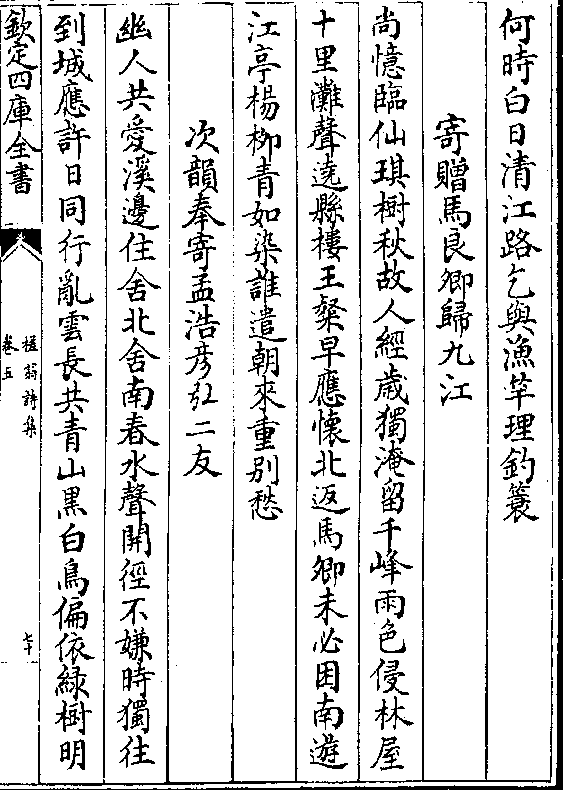 何時白日清江路乞與漁竿理釣蓑
寄贈馬良卿歸九江
尚憶臨仙琪樹秋故人經歳獨淹留千峰雨色侵林屋
十里灘聲遶縣樓王粲早應懷北返馬卿未必困南遊
江亭楊柳青如染誰遣朝來重別愁
次韻奉寄孟浩彦弘二友
幽人共愛溪邊住舍北舍南春水聲開徑不嫌時獨往
到城應許日同行亂雲長共青山黒白鳥偏依緑樹明
欽定四庫全書
翁詩集
卷五